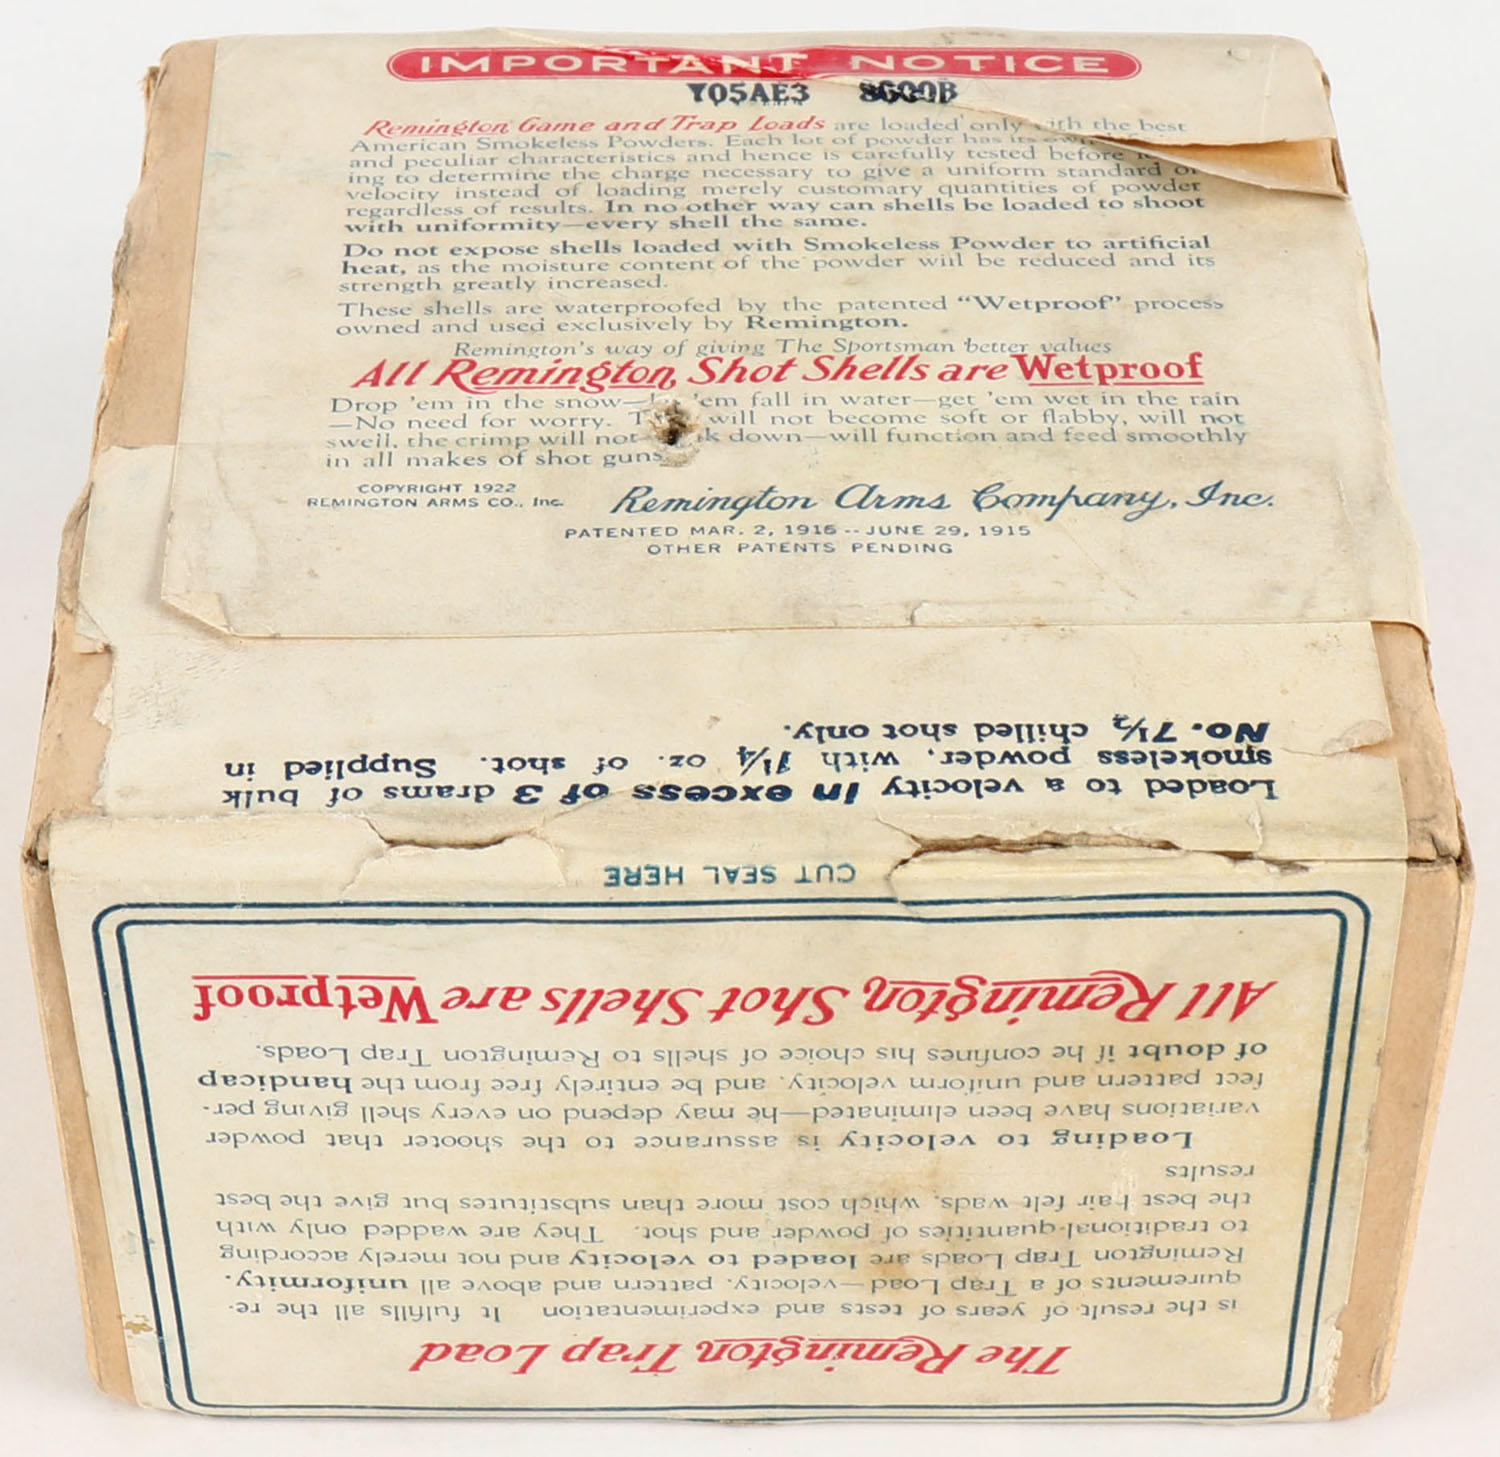 IMPORTANT NOTICE
Y05AE3 8600B
Remington Game and Trap Loads are loaded only with the best
American Smokeless Powders. Each lot of powder has its own
and peculiar characteristics and hence is carefully tested before
ing to determine the charge necessary to give a uniform standard of
velocity instead of loading merely customary quantities of powder
regardless of results. In no other way can shells be loaded to shoot
with uniformity—every shell the same.
Do not expose shells loaded with Smokeless Powder to artificial
heat, as the moisture content of the powder will be reduced and its
strength greatly increased.
These shells are waterproofed by the patented "Wetproof" process
owned and used exclusively by Remington.
Remington's way of giving The Sportsman better values
All Remington Shot Shells are Wetproof
Drop 'em in the snow—let 'em fall in water—get 'em wet in the rain
—No need for worry. They will not become soft or flabby, will not
swell, the crimp will not down—will function and feed smoothly
in all makes of shot guns
COPYRIGHT 1922
REMINGTON ARMS CO., Inc.
Remington Arms Company, Inc.
PATENTED MAR. 2, 1915 -- JUNE 29, 1915
OTHER PATENTS PENDING
Loaded to a velocity in excess of 3 drams of bulk
smokeless powder, with 1¼ oz. of shot. Supplied in
No. 7½ chilled shot only.
CUT SEAL HERE
The Remington Trap Load
is the result of years of tests and experimentation It fulfills all the re-
quirements of a Trap Load—velocity, pattern and above all uniformity.
Remington Trap Loads are loaded to velocity and not merely according
to traditional quantities of powder and shot. They are wadded only with
the best hair felt wads, which cost more than substitutes but give the best
results
Loading to velocity is assurance to the shooter that powder
variations have been eliminated—he may depend on every shell giving per-
fect pattern and uniform velocity, and be entirely free from the handicap
of doubt if he confines his choice of shells to Remington Trap Loads.
All Remington Shot Shells are Wetproof